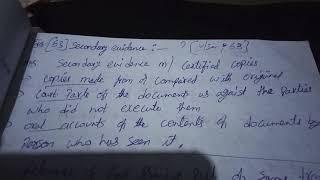 [63] Secondary evidence :— ? [U/Sec 63]
Secondary evidence m/ certified copies
copies made from or compared with original
Parts of the documents as against the Parties
who did not execute them
oral accounts of the contents of documents by
Person who has seen it,